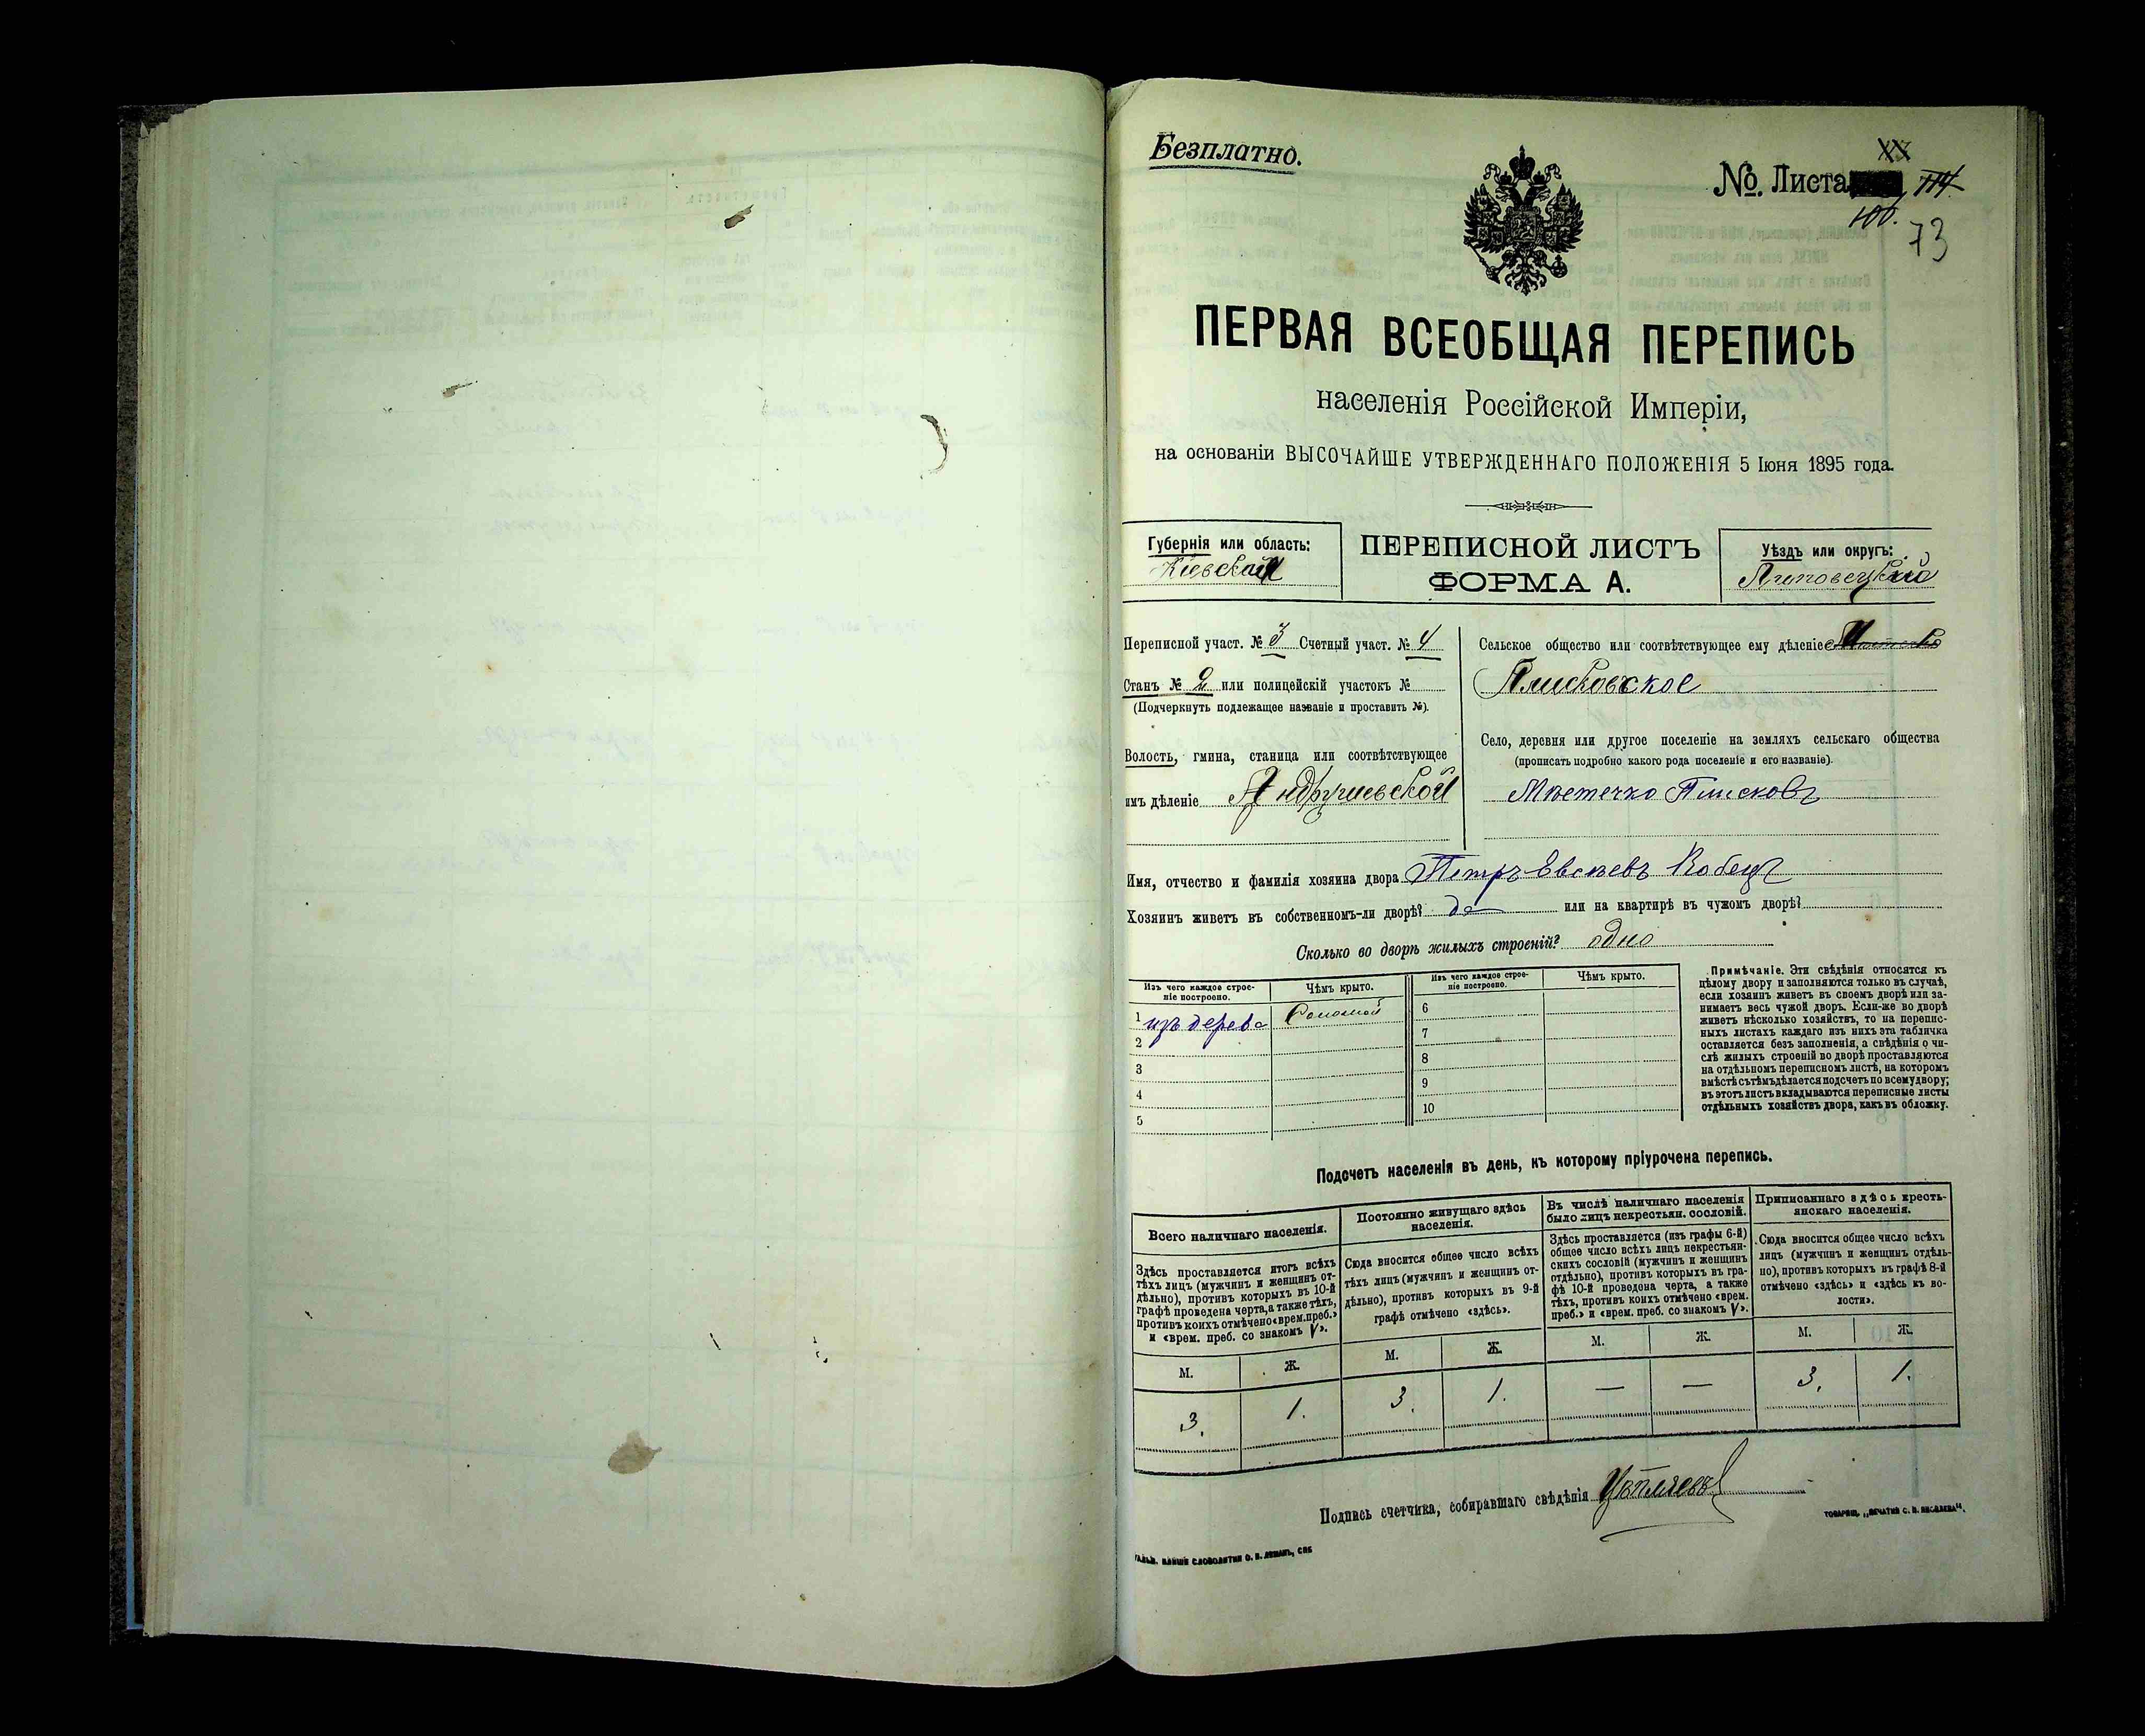 Безплатно.
№. Листа
100.
73
ПЕРВАЯ ВСЕОБЩАЯ ПЕРЕПИСЬ
населенія Россійской Имперіи,
на основаніи ВЫСОЧАЙШЕ УТВЕРЖДЕННАГО ПОЛОЖЕНІЯ 5 Іюня 1895 года.
Губернія или область:
Кіевская
ПЕРЕПИСНОЙ ЛИСТЪ
ФОРМА А.
Уѣздъ или округъ:
Липовецкій
Переписной участ. № 3 Счетный участ. № 4
Станъ № 2 или полицейскій участокъ №
(Подчеркнуть подлежащее названіе и проставить №).
Волость, гмина, станица или соотвѣтствующее
имъ дѣленіе Андрушевской
Сельское общество или соотвѣтствующее ему дѣленіе
Плисковское
Село, деревня или другое поселеніе на земляхъ сельскаго общества
(прописать подробно какого рода поселеніе и его названіе).
Мѣстечко Плисковъ
Имя, отчество и фамилія хозяина двора Петръ Евсѣевъ Кобецъ
Хозяинъ живетъ въ собственномъ-ли дворѣ? да или на квартирѣ въ чужомъ дворѣ?
Сколько во дворѣ жилыхъ строеній? одно
Изъ чего каждое строе-
ніе построено.
Чѣмъ крыто.
Изъ чего каждое строе-
ніе построено.
Чѣмъ крыто.
1 изъ дерева Соломой 6
2 7
3 8
4 9
5 10
Примѣчаніе. Эти свѣдѣнія относятся къ
цѣлому двору и заполняются только въ случаѣ,
если хозяинъ живетъ въ своемъ дворѣ или за-
нимаетъ весь чужой дворъ. Если-же во дворѣ
живетъ нѣсколько хозяйствъ, то на перепис-
ныхъ листахъ каждаго изъ нихъ эта табличка
оставляется безъ заполненія, а свѣдѣнія о чи-
слѣ жилыхъ строеній во дворѣ проставляются
на отдѣльномъ переписномъ листѣ, на которомъ
вмѣстѣ съ тѣмъ дѣлается подсчетъ по всему двору;
въ этотъ листъ вкладываются переписные листы
отдѣльныхъ хозяйствъ двора, какъ въ обложку.
Подсчетъ населенія въ день, къ которому пріурочена перепись.
Всего наличнаго населенія.
Здѣсь проставляется итогъ всѣхъ
тѣхъ лицъ (мужчинъ и женщинъ от-
дѣльно), противъ которыхъ въ 10-й
графѣ проведена черта, а также тѣхъ,
противъ коихъ отмѣчено «врем. преб.»
и «врем. преб. со знакомъ V».
Постоянно живущаго здѣсь
населенія.
Сюда вносится общее число всѣхъ
тѣхъ лицъ (мужчинъ и женщинъ от-
дѣльно), противъ которыхъ въ 9-й
графѣ отмѣчено «здѣсь».
Въ числѣ наличнаго населенія
было лицъ некрестьян. сословій.
Здѣсь проставляется (изъ графы 6-й)
общее число всѣхъ лицъ некрестьян-
скихъ сословій (мужчинъ и женщинъ
отдѣльно), противъ которыхъ въ гра-
фѣ 10-й проведена черта, а также
тѣхъ, противъ коихъ отмѣчено «врем.
преб.» и «врем. преб. со знакомъ V».
Приписаннаго здѣсь кресть-
янскаго населенія.
Сюда вносится общее число всѣхъ
лицъ (мужчинъ и женщинъ отдѣль-
но), противъ которыхъ въ графѣ 8-й
отмѣчено «здѣсь» и «здѣсь къ во-
лости».
М. Ж. М. Ж. М. Ж. М. Ж.
3. 1. 3. 1. — — 3. 1.
Подпись счетчика, собиравшаго свѣдѣнія